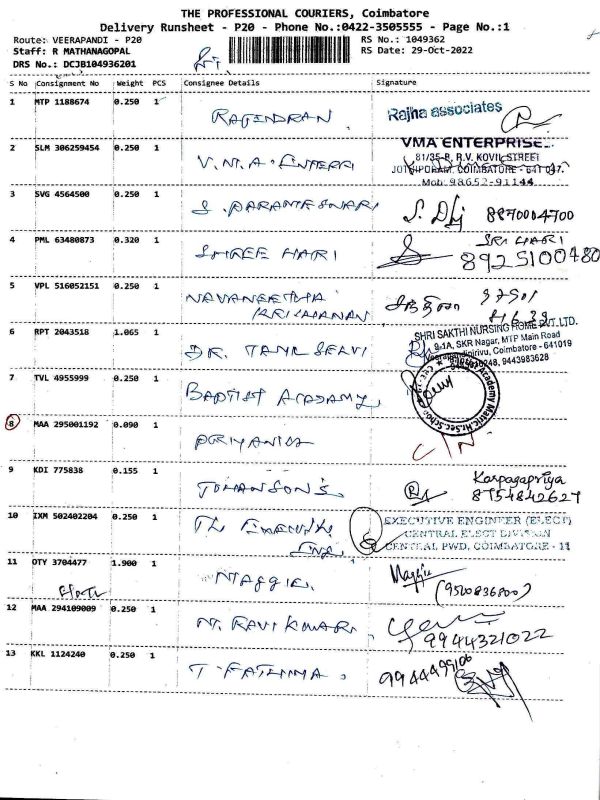 THE PROFESSIONAL COURIERS, Coimbatore
Delivery Runsheet - P20 - Phone No.:0422-3505555 - Page No.:1
Route: VEERAPANDI - P20
RS No.: 1049362
Staff: R MATHANAGOPAL
RS Date: 29-Oct-2022
DRS No.: DCJB104936201
S No Consignment No Weight PCS Consignee Details Signature
1 MTP 1188674 0.250 1 RAJENDRAN Rajha associates
2 SLM 306259454 0.250 1 V.M.A. ENTERPRI VMA ENTERPRISE
81/35-B, R.V. KOVIL STREET
JOTHIPURAM, COIMBATORE - 641 047.
Mob: 98652-91144
3 SVG 4564500 0.250 1 S. PARAMESWARI 8870004700
4 PML 63480873 0.320 1 SHREE HARI SRI HARI
8925100480
5 VPL 516052151 0.250 1 NAVANEETHA
KRISHANAN
6 RPT 2043518 1.065 1 DR. TAMIL SELVI SHRI SAKTHI NURSING HOME PVT. LTD.
9-1A, SKR Nagar, MTP Main Road
Coimbatore - 641019
9443983628
7 TVL 4955999 0.250 1 BAPTIST ACADEMY
Academy Matric.Hr.Sec.School
8 MAA 295001192 0.090 1 PRIYANKA C/N
9 KDI 775838 0.155 1 JOHANSON'S Karpagapriya
8754842627
10 IXM 502402204 0.250 1 THE EXECUTIVE
ENG. EXECUTIVE ENGINEER (ELECT)
CENTRAL ELECT DIVISION
CENTRAL PWD, COIMBATORE - 11
11 OTY 3704477 1.900 1 MAGGIE. Maggie
(9500836800)
12 MAA 294109009 0.250 1 N. RAVI KUMAR
9944321022
13 KKL 1124240 0.250 1 T. FATHIMA. 9944499106